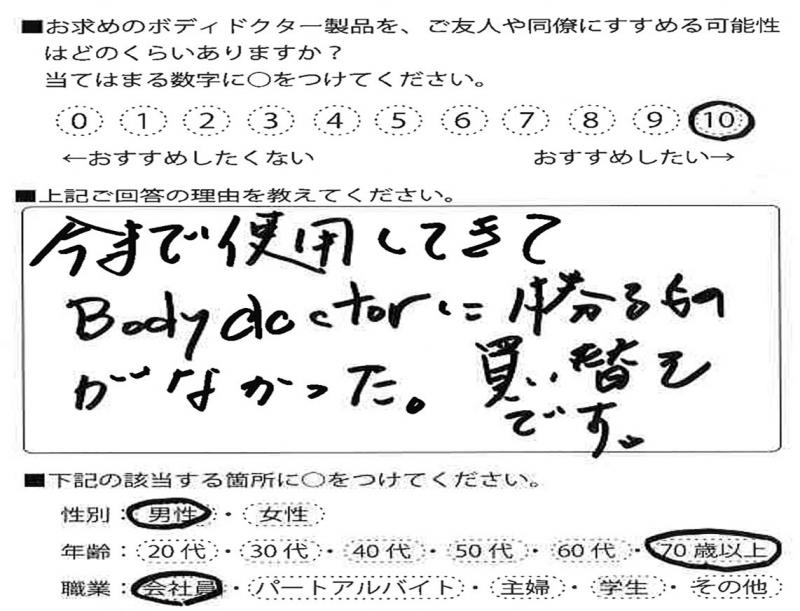 ■お求めのボディドクター製品を、ご友人や同僚にすすめる可能性
はどのくらいありますか？
当てはまる数字に○をつけてください。
0 1 2 3 4 5 6 7 8 9 10
←おすすめしたくない おすすめしたい→
■上記ご回答の理由を教えてください。
今まで使用してきて
Body doctorに勝るもの
がなかった。買い替え
です。
■下記の該当する箇所に○をつけてください。
性別：男性・女性
年齢：20代・30代・40代・50代・60代・70歳以上
職業：会社員・パートアルバイト・主婦・学生・その他